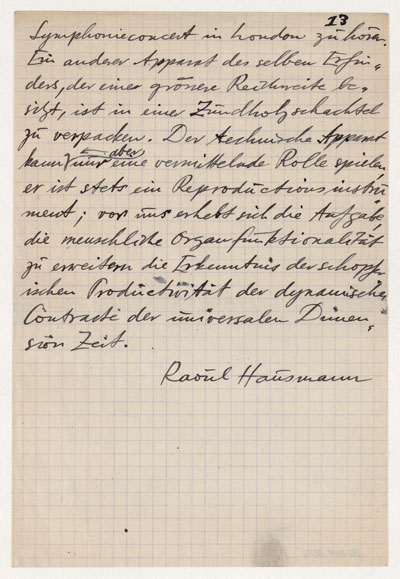 13
Symphonieconcert in London zu hören.
Ein anderer Apparat des selben Erfin-
ders, der einer grössere Reichweite be-
sitzt, ist in einer Zündholzschachtel
zu verpacken. Der technische Apparat
kann aber nur eine vermittelnde Rolle spielen,
er ist stets ein Reproductionsinstru
ment; vor uns erhebt sich die Aufgabe,
die menschliche Organfunktionalität
zu erweitern die Erkenntnis der schöpfe-
rischen Productivität der dynamischen
der universalen Dimen-
sion Zeit.
Raoul Hausmann